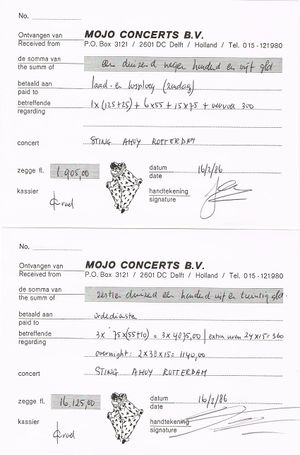 No.
Ontvangen van MOJO CONCERTS B.V.
Received from P.O. Box 3121 / 2601 DC Delft / Holland / Tel. 015-121980
de somma van een duizend negen honderd en vijf gld
the summ of
betaald aan laad- en losploeg (zondag)
paid to
betreffende 1x (125+25) + 6x55 + 15x75 + vervoer 300
regarding
concert STING AHOY ROTTERDAM
zegge fl. 1.905,00 datum 16/2/86
date
kassier handtekening
signature
No.
Ontvangen van MOJO CONCERTS B.V.
Received from P.O. Box 3121 / 2601 DC Delft / Holland / Tel. 015-121980
de somma van zestien duizend een honderd vijf en twintig gld
the summ of
betaald aan ordedienst
paid to
betreffende 3x 75x(55+10) = 3x4875,00 extra uren 24x15=360
regarding
overnight: 2x38x15= 1140,00
concert STING AHOY ROTTERDAM
zegge fl. 16.125,00 datum 16/2/86
date
kassier handtekening
signature